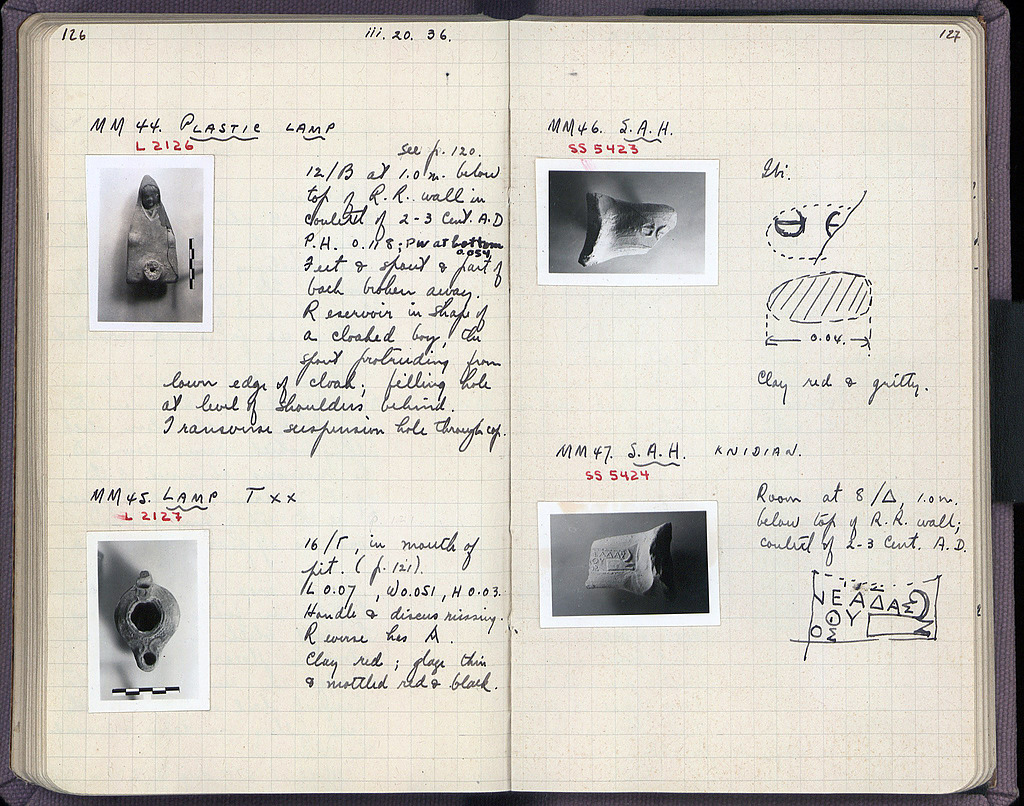 126
iii. 20. 36.
MM 44. PLASTIC LAMP
L 2126
See p. 120.
12/B at 1.0 m. below
top of R.R. wall in
context of 2-3 Cent. A.D
P.H. 0.118; PW at bottom
0.054
Feet & spout & part of
back broken away.
Reservoir in shape of
a cloaked boy, the
spout protruding from
lower edge of cloak; filling hole
at level of shoulders behind.
Transverse suspension hole through cap.
MM 45. LAMP T XX
L 2127
16/Γ, in mouth of
pit. (p. 121).
L 0.07, W 0.051, H 0.03.
Handle & discus missing.
Reverse has A.
Clay red; glaze thin
& mottled red & black.
127
MM46. S.A.H.
SS 5423
Ibi.
0.04.
Clay red & gritty.
MM47. S.A.H. KNIDIAN.
SS 5424
Room at 8/Δ, 1.0 m.
below top of R.R. wall;
context of 2-3 Cent. A.D.
ΝΕΑΔΑΣ
ΟΥ
ΟΣ